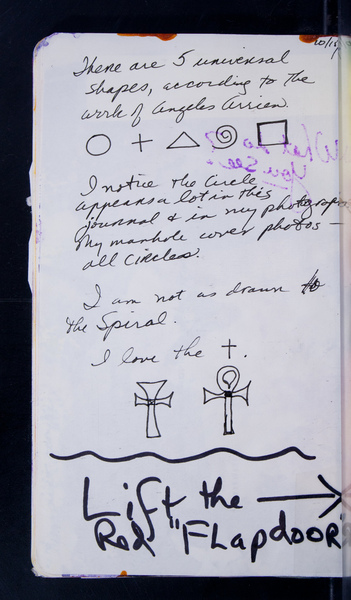 20/18
There are 5 universal
shapes, according to the
work of Angeles Arrien.
What do
You See?
I notice the Circle
appears a lot in this
journal & in my photographs
My manhole cover photos —
all circles.
I am not as drawn to
the Spiral.
I love the †.
Lift the
Red "Flapdoor"